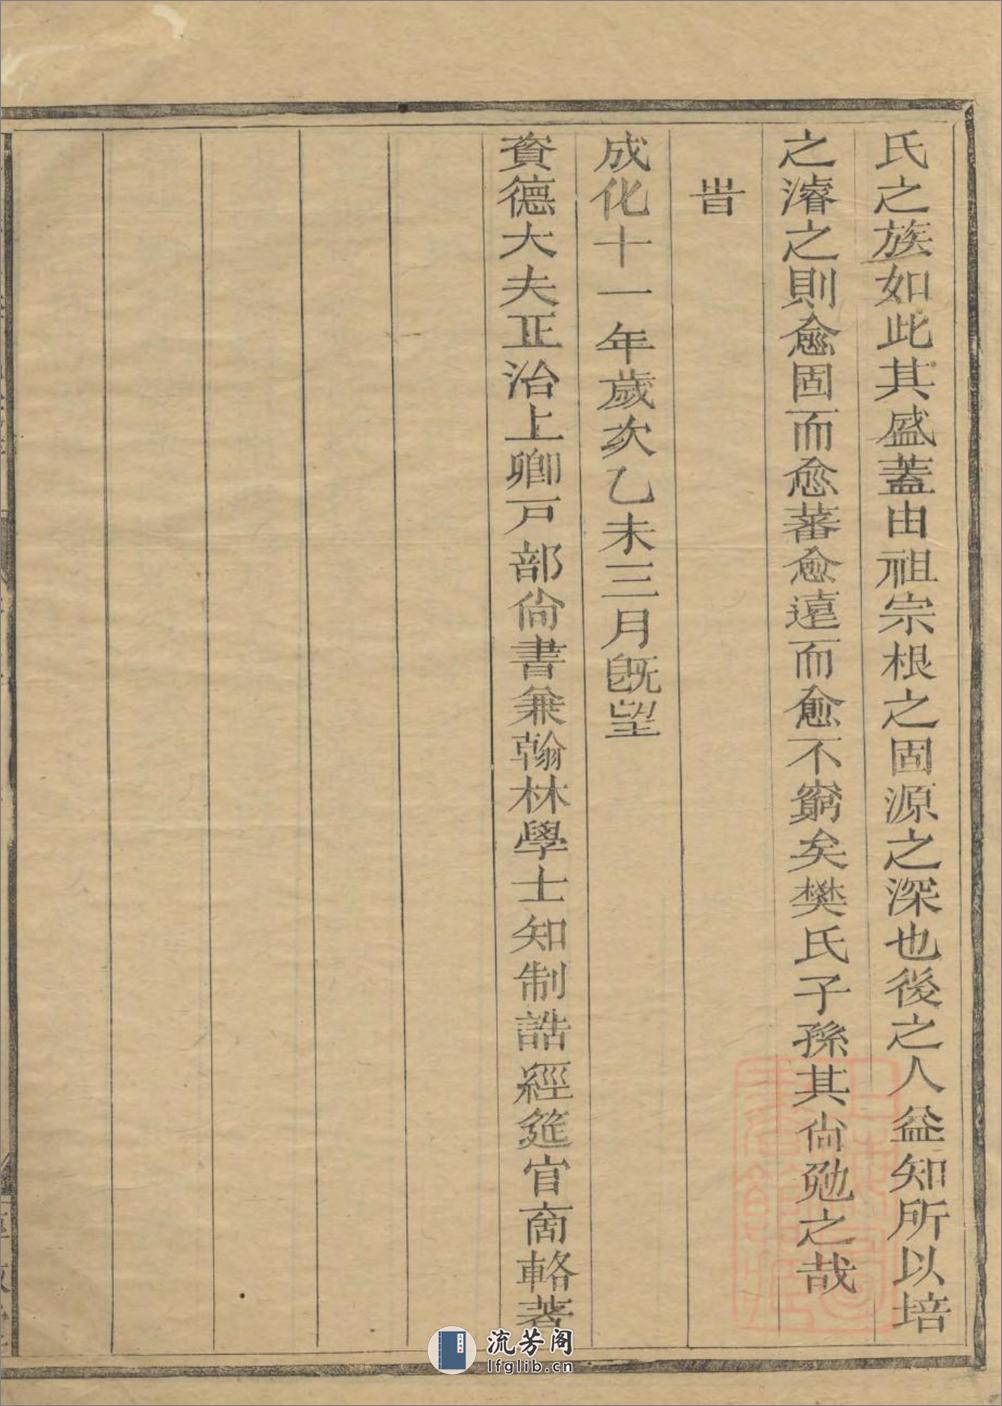 氏之族如此其盛蓋由祖宗根之固源之深也後之人益知所以培
之濬之則愈固而愈蕃愈遠而愈不窮矣樊氏子孫其尙勉之哉
旹
成化十一年歲次乙未三月旣望
資德大夫正治上卿戸部尙書兼翰林學士知制誥經筵官商輅著
流芳阁
lfglib.cn